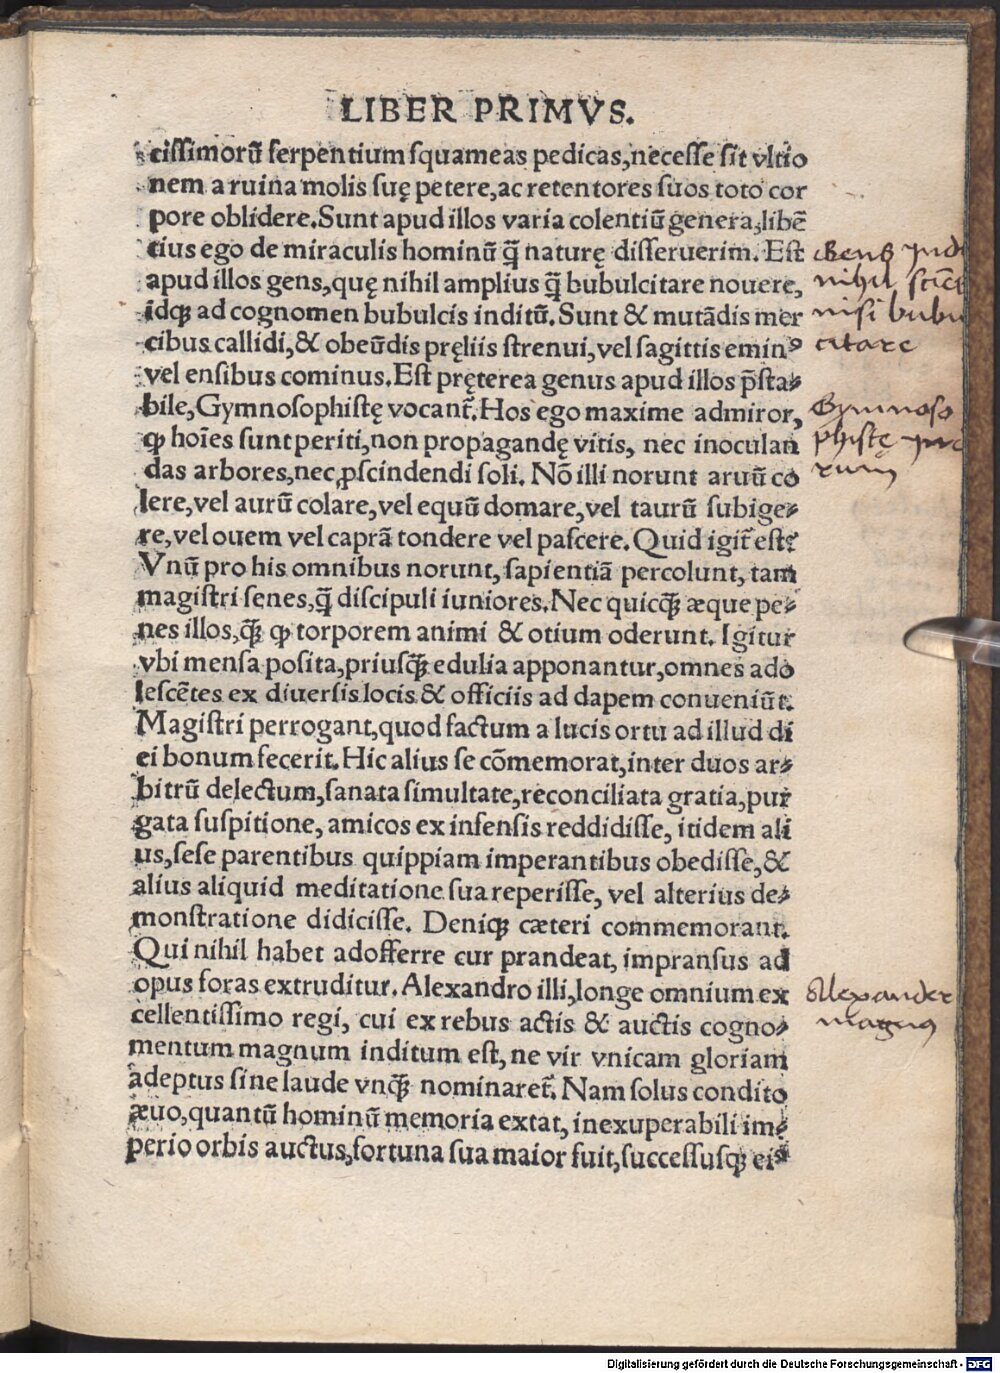 LIBER PRIMVS.
cissimorū serpentium squameas pedicas, necesse sit vltio
nem a ruina molis suę petere, ac retentores suos toto cor
pore oblidere. Sunt apud illos varia colentiū genera, libē
tius ego de miraculis hominū q̄ naturę disseruerim. Est
apud illos gens, quę nihil amplius q̄ bubulcitare nouere,
idqꝫ ad cognomen bubulcis inditū. Sunt & mutādis mer
cibus callidi, & obeūdis pręliis strenui, vel sagittis eminꝰ
vel ensibus cominus. Est pręterea genus apud illos p̄sta⸗
bile, Gymnosophistę vocant᷑. Hos ego maxime admiror,
ꝙ hoīes sunt periti, non propagandę vitis, nec inoculan
das arbores, nec ꝓscindendi soli. Nō illi norunt aruū co
lere, vel aurū colare, vel equū domare, vel taurū subige⸗
re, vel ouem vel caprā tondere vel pascere. Quid igit᷑ est?
Vnū pro his omnibus norunt, sapientiā percolunt, tam
magistri senes, q̄ discipuli iuniores. Nec quicq̄ꝫ æque pe⸗
nes illos, q̄ꝫ ꝙ torporem animi & otium oderunt. Igitur
vbi mensa posita, priusq̄ꝫ edulia apponantur, omnes ado
lescētes ex diuersis locis & officiis ad dapem conueniūt.
Magistri perrogant, quod factum a lucis ortu ad illud di
ei bonum fecerit. Hic alius se cōmemorat, inter duos ar⸗
bitrū delectum, sanata simultate, reconciliata gratia, pur
gata suspitione, amicos ex infensis reddidisse, itidem ali
us, sese parentibus quippiam imperantibus obedisse, &
alius aliquid meditatione sua reperisse, vel alterius de⸗
monstratione didicisse. Deniqꝫ cæteri commemorant.
Qui nihil habet adofferre cur prandeat, impransus ad
opus foras extruditur. Alexandro illi, longe omnium ex
cellentissimo regi, cui ex rebus actis & auctis cogno⸗
mentum magnum inditum est, ne vir vnicam gloriam
adeptus sine laude vnq̄ꝫ nominaret᷑. Nam solus condito
æuo, quantū hominū memoria extat, inexuperabili im⸗
perio orbis auctus, fortuna sua maior fuit, successusqꝫ eiꝰ
Gens Ind
nihil
nisi bubu
citare
Gymnoso
phistę
Alexander
magnus
Digitalisierung gefördert durch die Deutsche Forschungsgemeinschaft - DFG